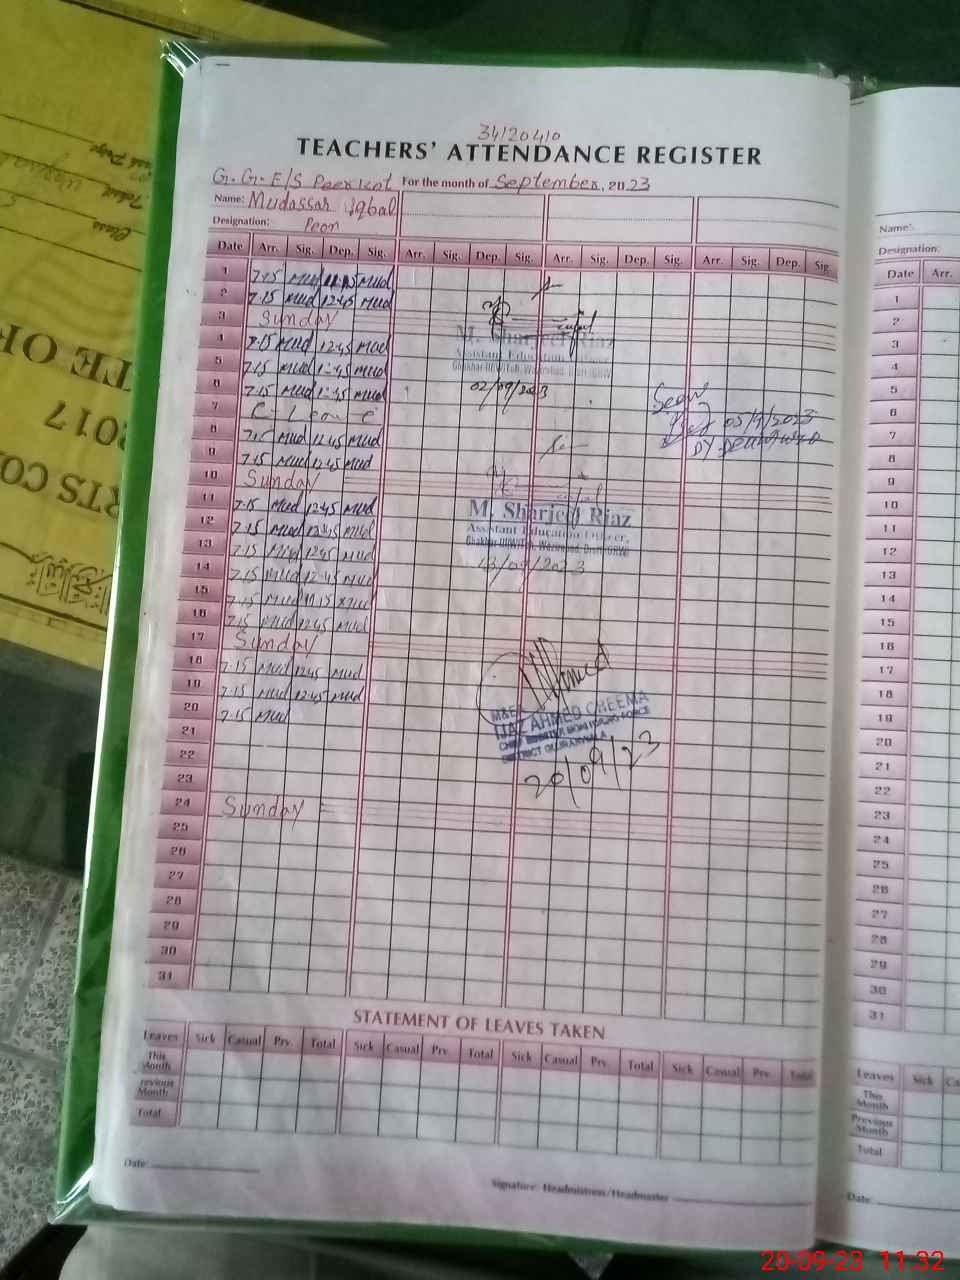 34120410
TEACHERS' ATTENDANCE REGISTER
G.G.E/S Peerkot For the month of September, 2023
Name: Mudassar Iqbal
Designation: Peon
Date Arr. Sig. Dep. Sig. Arr. Sig. Dep. Sig. Arr. Sig. Dep. Sig. Arr. Sig. Dep. Sig.
1 7.15 Mud 11.15 Mud
2 7.15 Mud 12.45 Mud
3 Sunday
4 7.15 Mud 12.45 Mud
5 7.15 Mud 12.45 Mud
6 7.15 Mud 12.45 Mud
7 C. Leave
8 7.15 Mud 12.45 Mud
9 7.15 Mud 12.45 Mud
10 Sunday
11 7.15 Mud 12.45 Mud
12 7.15 Mud 12.45 Mud
13 7.15 Mud 12.45 Mud
14 7.15 Mud 12.45 Mud
15 7.15 Mud 11.15 Mud
16 7.15 Mud 12.45 Mud
17 Sunday
18 7.15 Mud 12.45 Mud
19 7.15 Mud 12.45 Mud
20 7.15 Mud
21
22
23
24 Sunday
25
26
27
28
29
30
31
M. Sharjeel Riaz
Assistant Education Officer,
02/09/2023
Seen
05/9/2023
DY
M. Sharjeel Riaz
Assistant Education Officer,
13/09/2023
M&EA
IJAZ AHMED CHEEMA
CHIEF MINISTER MONITORING FORCE
DISTRICT GUJRANWALA
20/09/23
STATEMENT OF LEAVES TAKEN
Leaves Sick Casual Prv. Total Sick Casual Prv. Total Sick Casual Prv. Total Sick Casual Prv. Total
This Month
revious Month
Total
Date:
Signature: Headmistress/Headmaster
Name:
Designation:
Date Arr.
1
2
3
4
5
6
7
8
9
10
11
12
13
14
15
16
17
18
19
20
21
22
23
24
25
26
27
28
29
30
31
Leaves Sick Ca
This Month
Previous Month
Total
Date
TE OF
2017
RTS CO
Class
20-09-23 11:32